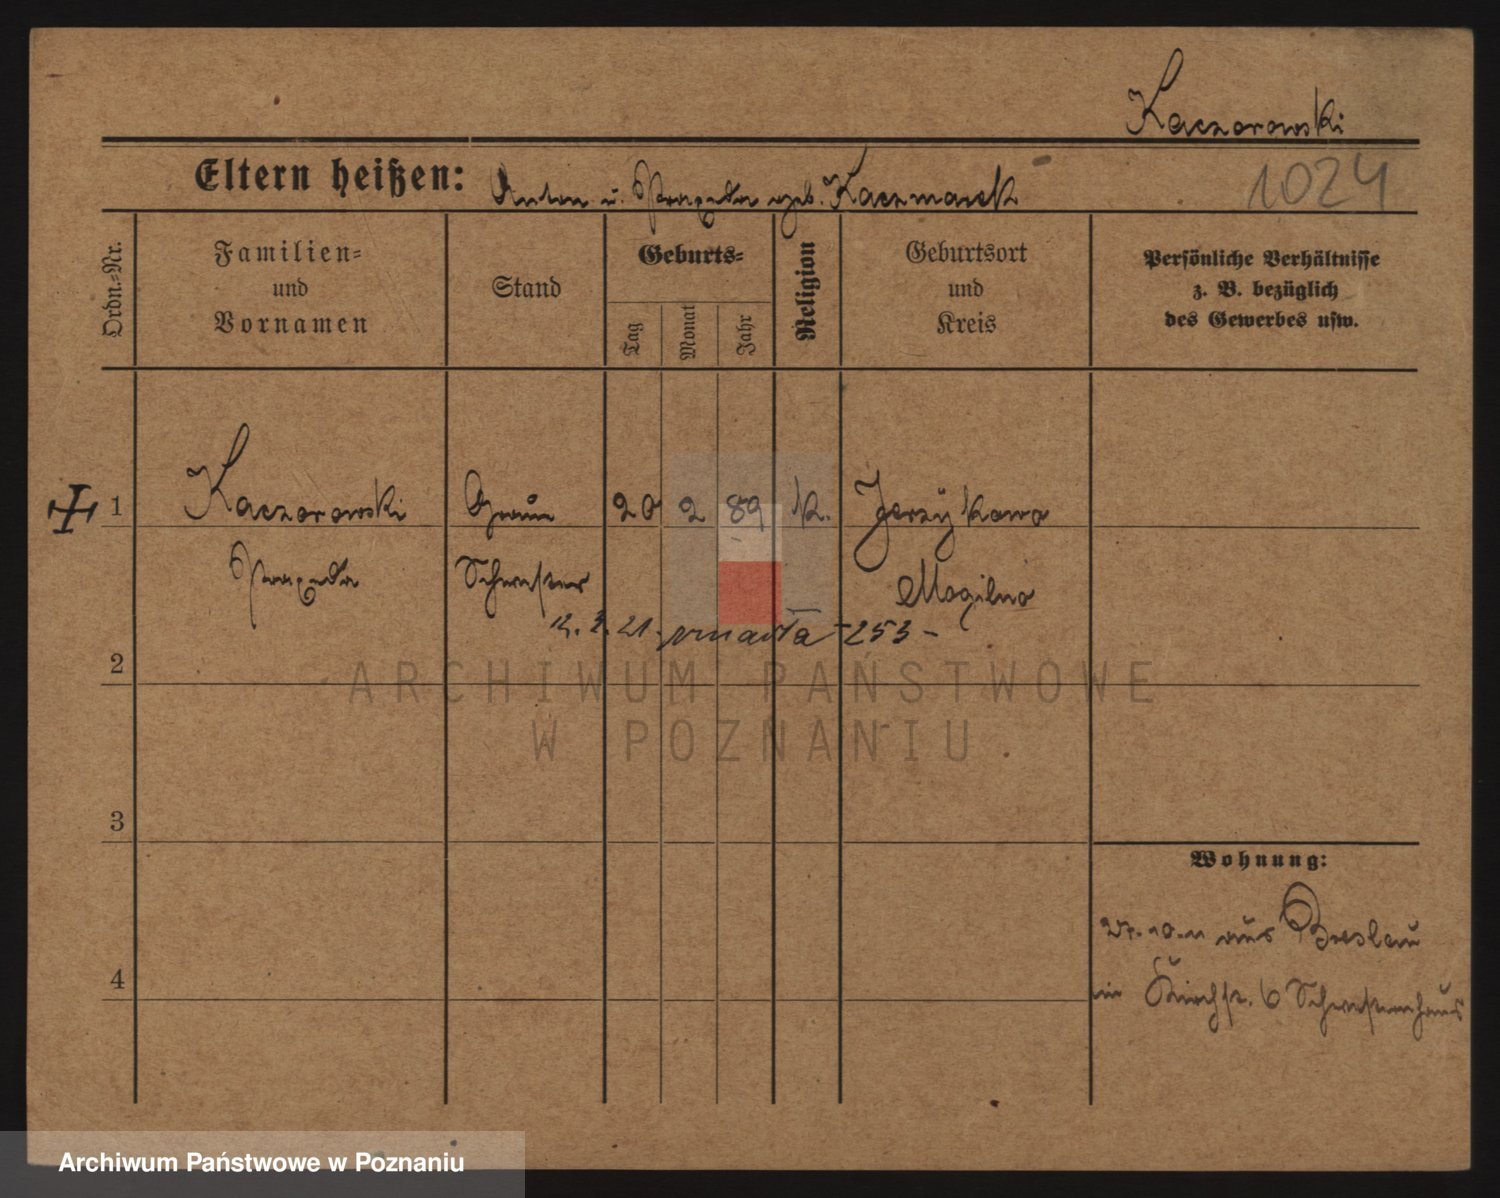 Kaczorowski
Eltern heißen: Anton u. Praxeda geb. Kaczmarek
1024
Ordn.-Nr.
Familien=
und
Vornamen
Stand
Geburts=
Tag
Monat
Jahr
Religion
Geburtsort
und
Kreis
Persönliche Verhältnisse
z. B. bezüglich
des Gewerbes usw.
1 Kaczorowski Graue 20 2 89 k. Jerzÿkowo
Praxeda Schwester Mogilno
12. 3. 21. zmarła 253 -
2
ARCHIWUM PAŃSTWOWE
W POZNANIU
3
Wohnung:
aus Breslau
in Kirchstr. 6 Schwesternhaus
4
Archiwum Państwowe w Poznaniu